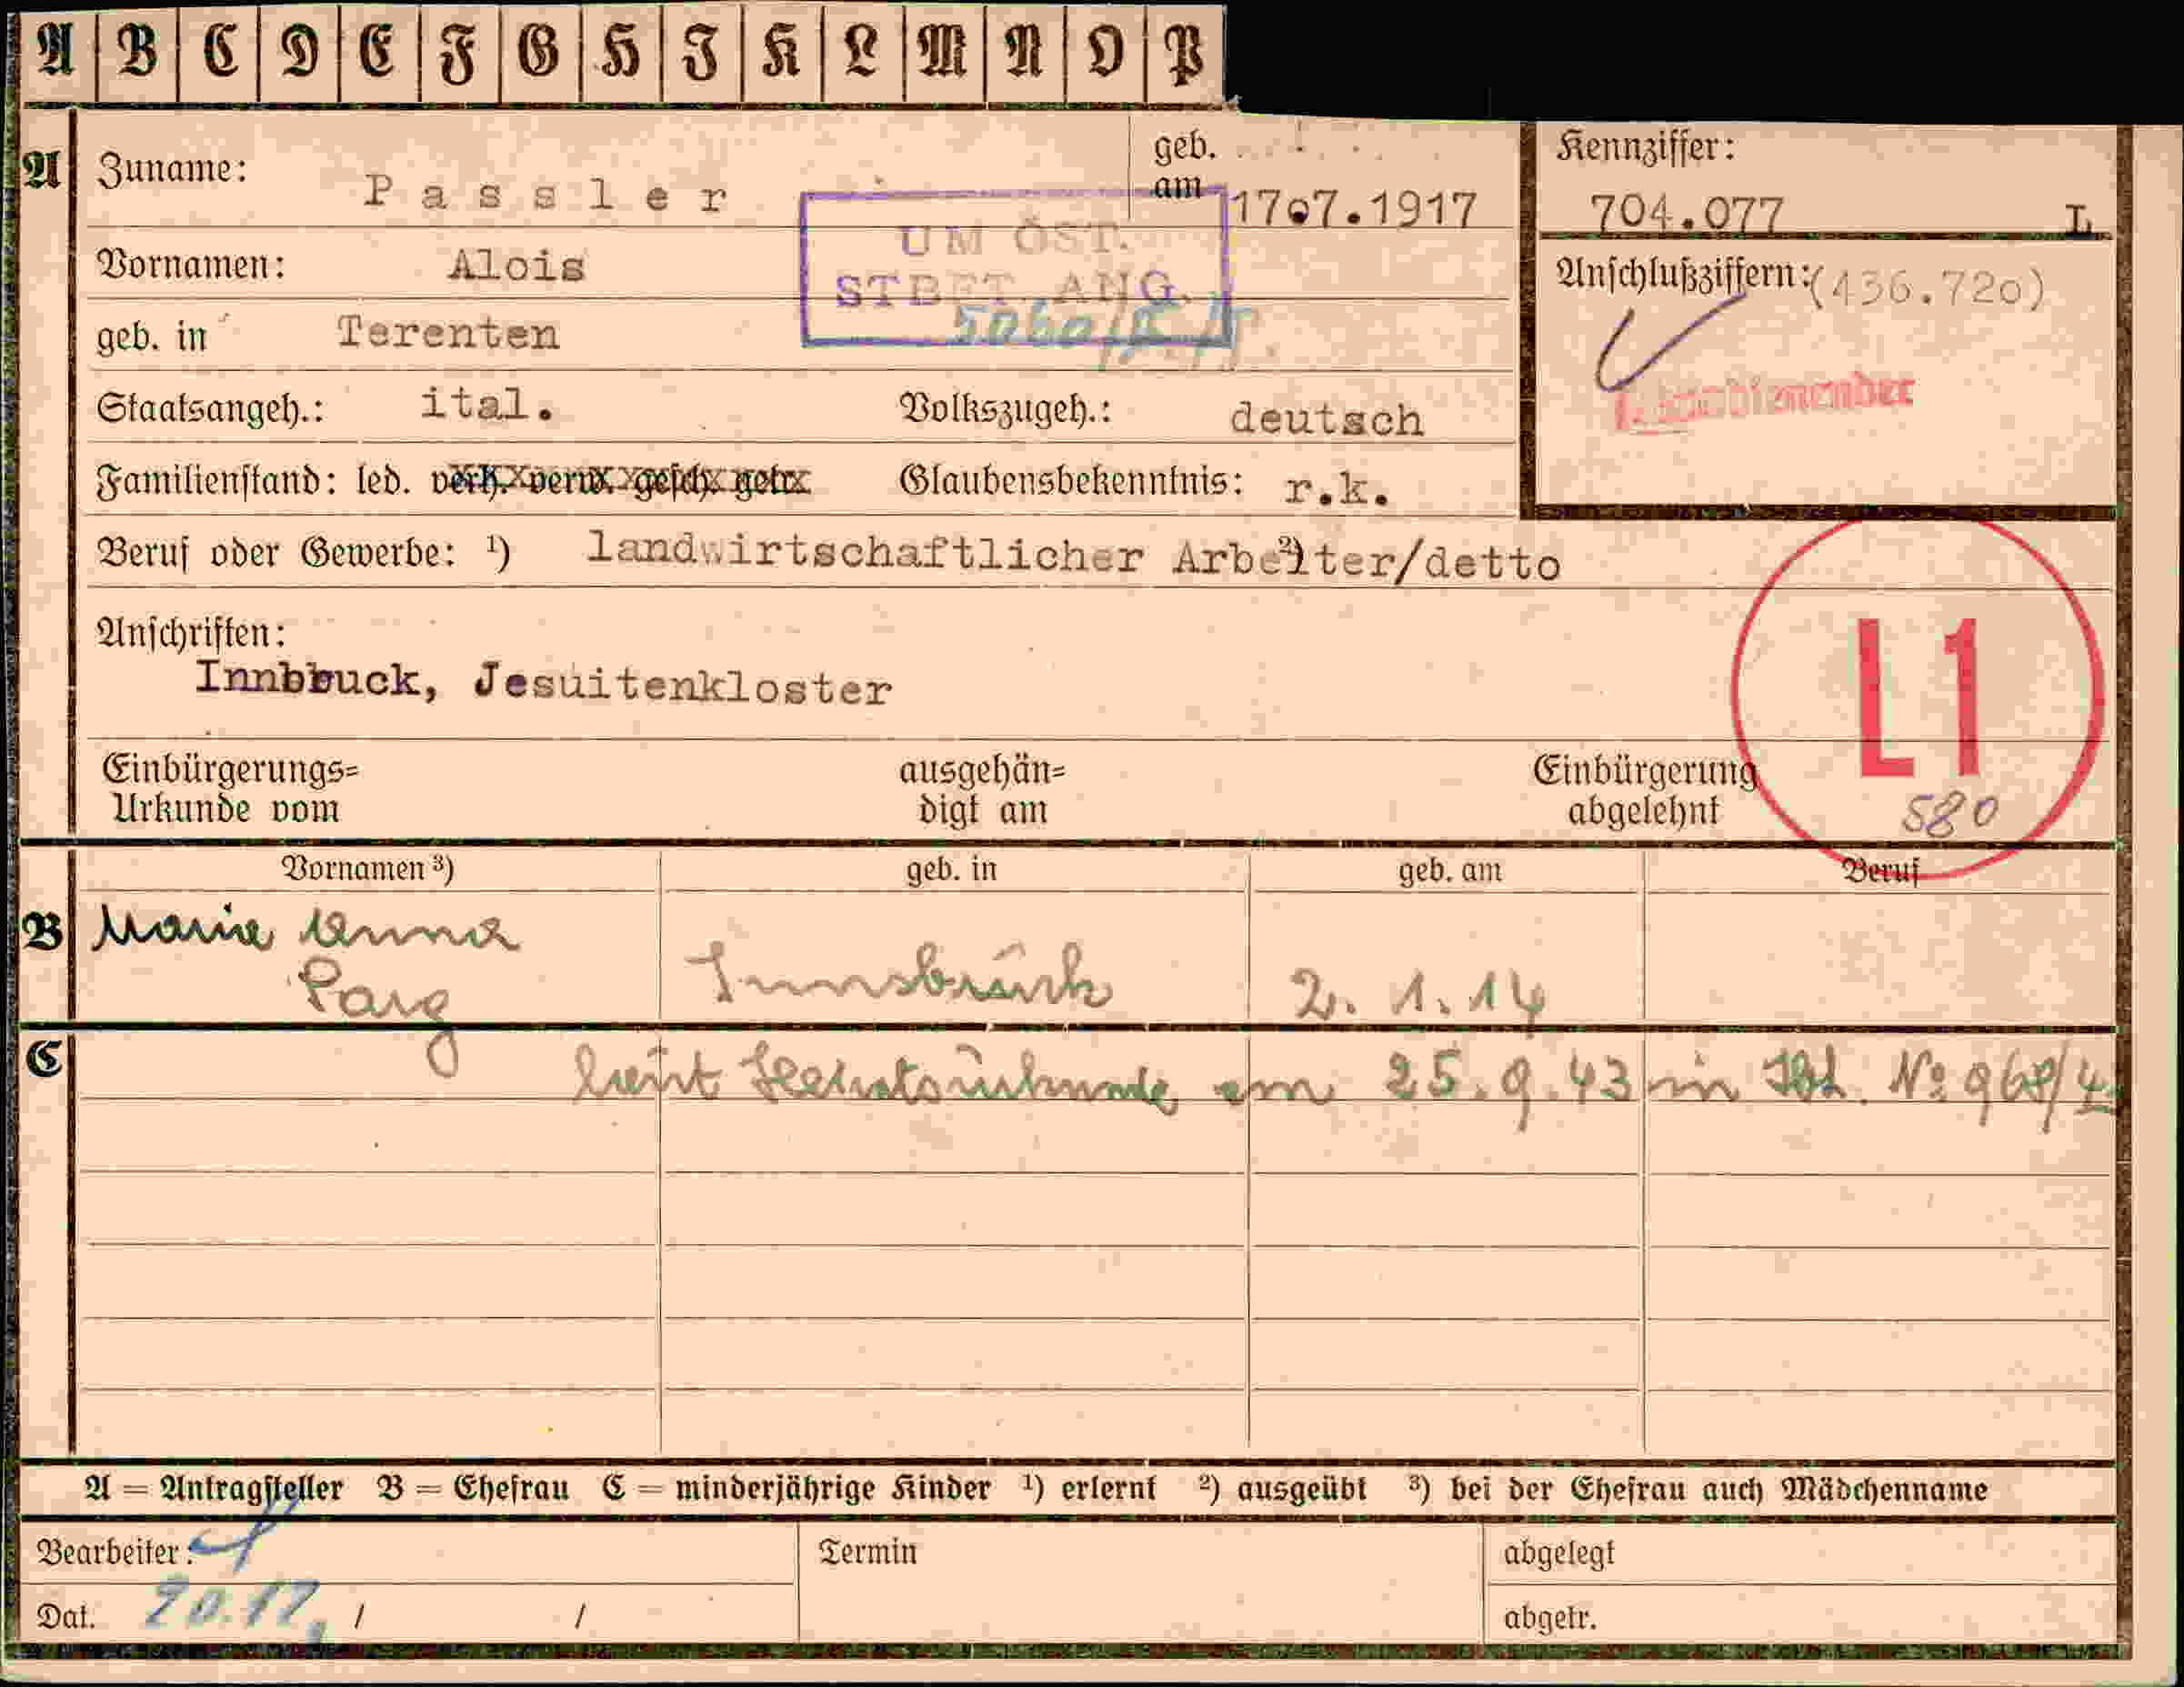 A B C D E F G H I K L M N O P
A
Zuname: Passler
geb. am 17.7.1917
Kennziffer:
704.077 L
UM ÖST.
STBET. ANG.
Vornamen: Alois
Anschlußziffern: (436.720)
geb. in Terenten
Staatsangeh.: ital. Volkszugeh.: deutsch
Familienstand: led. verh. verw. gesch. getr. Glaubensbekenntnis: r.k.
Beruf oder Gewerbe: ¹) landwirtschaftlicher Arbeiter/detto ²)
Anschriften:
Innbbuck, Jesuitenkloster
L1
580
Einbürgerungs=
Urkunde vom
ausgehän=
digt am
Einbürgerung
abgelehnt
Vornamen ³) geb. in geb. am Beruf
B Maria Anna
Innsbruck 2. 1. 14
C
laut Heiratsurkunde am 25.9.43 in Ibk. No
A = Antragsteller B = Ehefrau C = minderjährige Kinder ¹) erlernt ²) ausgeübt ³) bei der Ehefrau auch Mädchenname
Bearbeiter: Termin abgelegt
Dat. 20.12. / / abgetr.